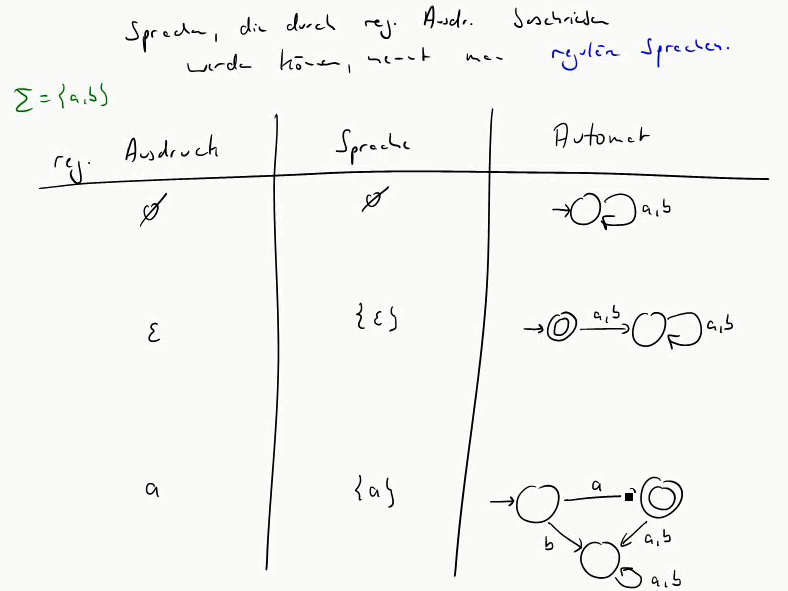 Sprachen, die durch reg. Ausdr. beschrieben
werden können, nennt man reguläre Sprachen.
Σ = {a,b}
reg. Ausdruck Sprache Automat
∅ ∅ a,b
ε {ε} a,b a,b
a {a} a
b a,b
a,b